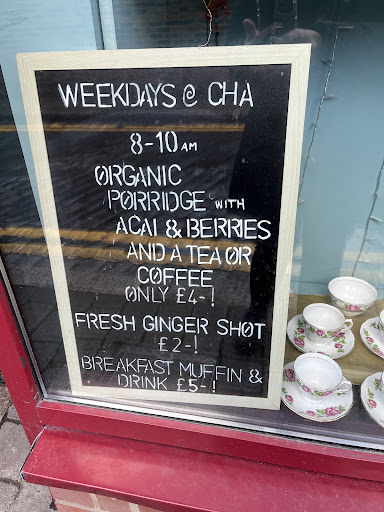 WEEKDAYS @ CHA
8-10 AM
ORGANIC
PORRIDGE WITH
ACAI & BERRIES
AND A TEA OR
COFFEE
ONLY £4-!
FRESH GINGER SHOT
£2-!
BREAKFAST MUFFIN &
DRINK £5-!